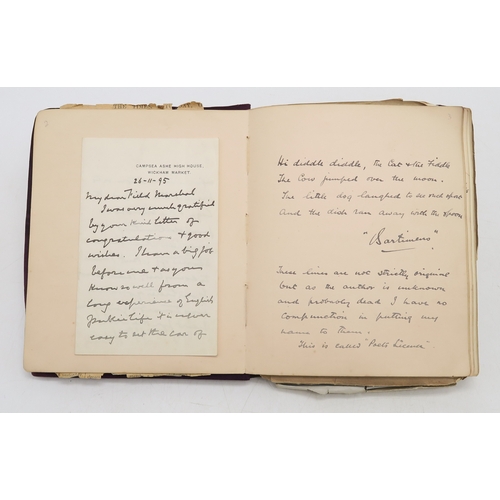 CAMPSEA ASHE HIGH HOUSE,
WICKHAM MARKET.
26-11-95
My dear Field Marshal
I was very much gratified
by your kind letter of
congratulations & good
wishes. I have a big job
before me & as you
know so well from a
long experience of English
Public Life it is never
easy to get the ear of
Hi diddle diddle, the Cat & the Fiddle
The Cow jumped over the moon.
The little dog laughed to see such sport
And the dish ran away with the spoon
"Bartimeus"
These lines are not strictly original
but as the author is unknown
and probably dead I have no
compunction in putting my
name to them.
This is called "Poets Licence"